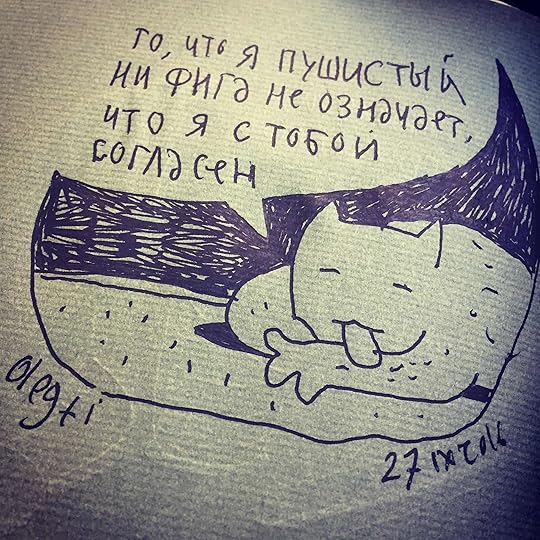 то, что я пушистый
ни фига не означает,
что я с тобой
согласен
olegti
27 ix 2016